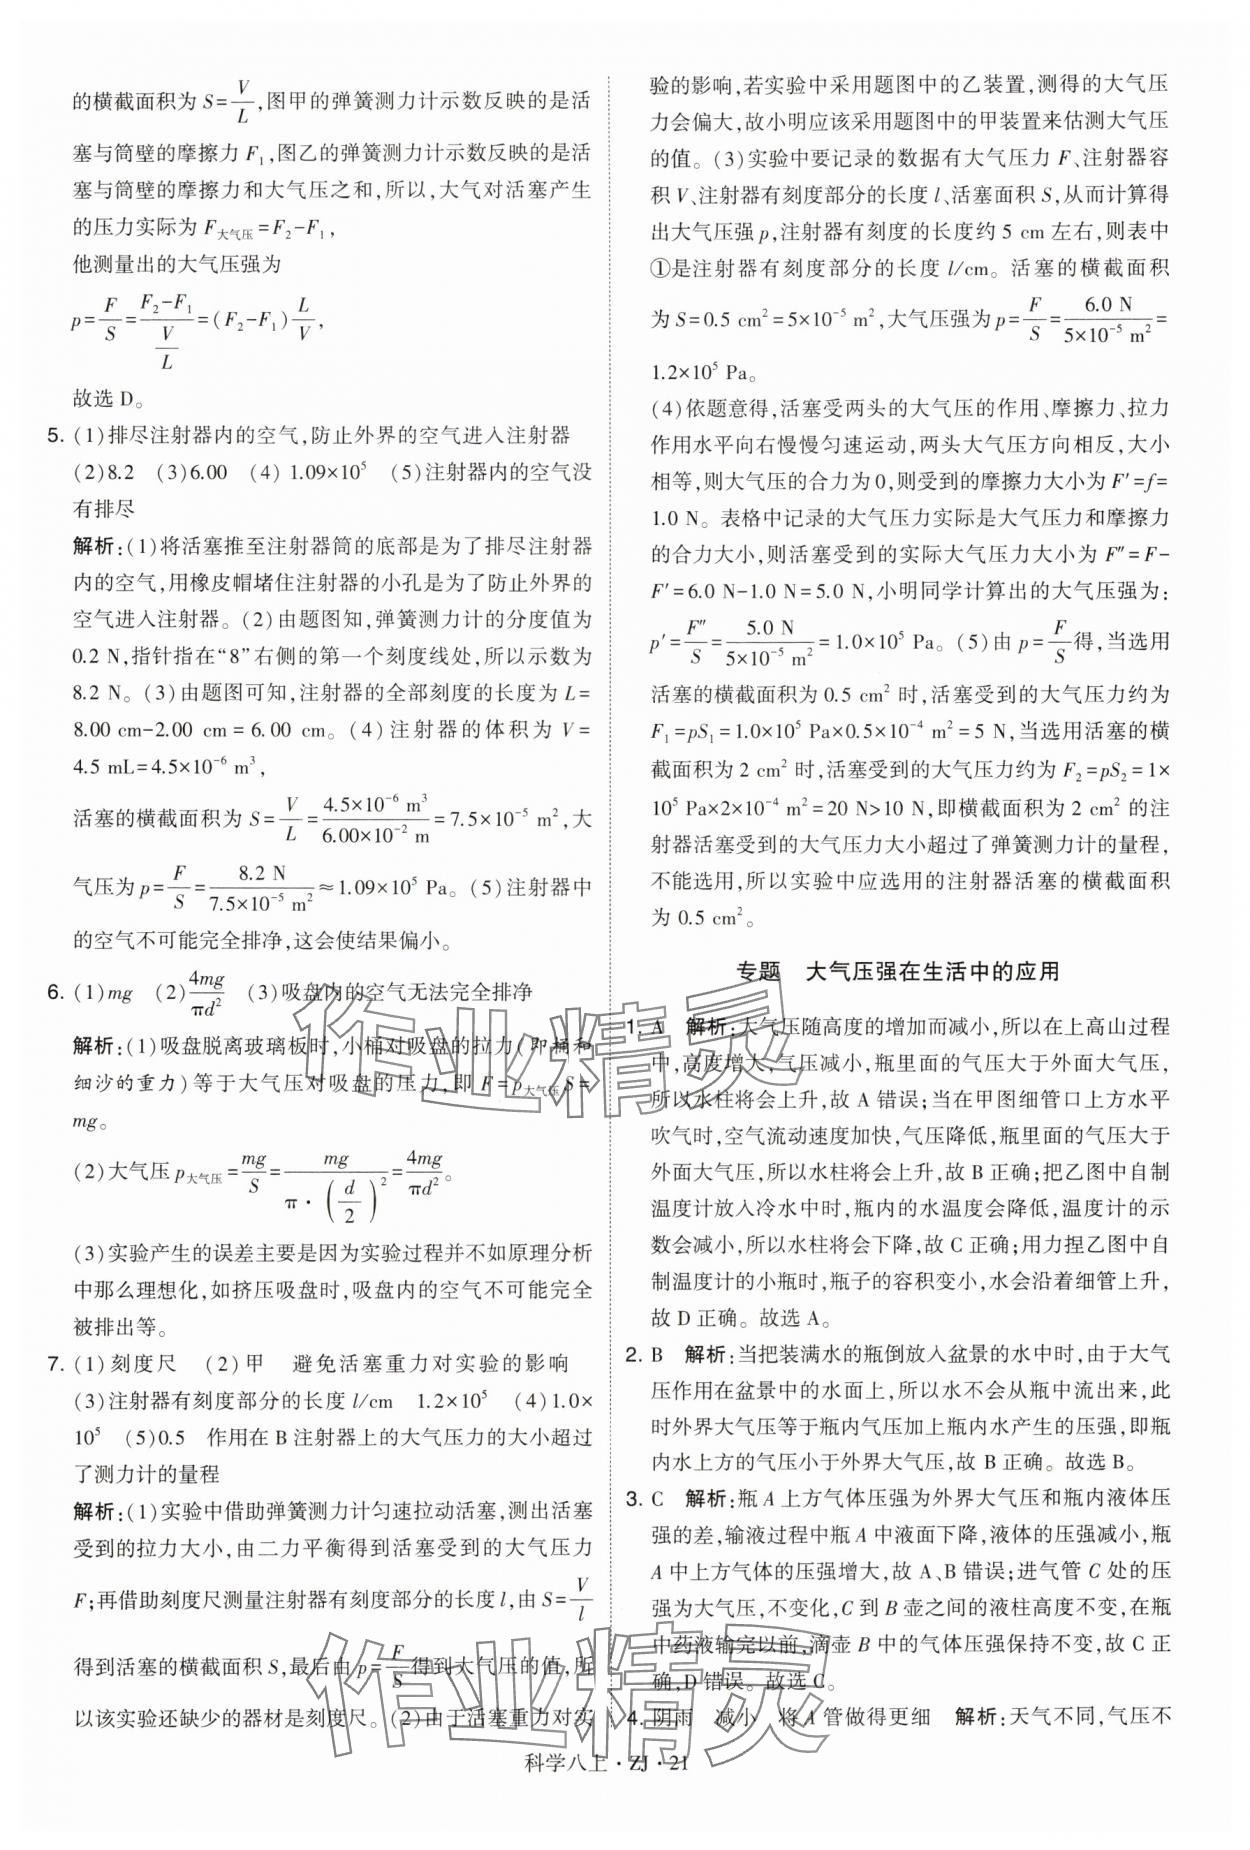 的横截面积为 S=V/L,图甲的弹簧测力计示数反映的是活
塞与筒壁的摩擦力 F₁,图乙的弹簧测力计示数反映的是活
塞与筒壁的摩擦力和大气压之和,所以,大气对活塞产生
的压力实际为 F大气压=F₂-F₁,
他测量出的大气压强为
p=F/S=(F₂-F₁)/(V/L)=(F₂-F₁)L/V,
故选 D。
5. (1)排尽注射器内的空气,防止外界的空气进入注射器
(2)8.2 (3)6.00 (4) 1.09×10⁵ (5)注射器内的空气没
有排尽
解析:(1)将活塞推至注射器筒的底部是为了排尽注射器
内的空气,用橡皮帽堵住注射器的小孔是为了防止外界的
空气进入注射器。(2)由题图知,弹簧测力计的分度值为
0.2 N,指针指在“8”右侧的第一个刻度线处,所以示数为
8.2 N。(3)由题图可知,注射器的全部刻度的长度为 L=
8.00 cm-2.00 cm=6.00 cm。(4)注射器的体积为 V=
4.5 mL=4.5×10⁻⁶ m³,
活塞的横截面积为 S=V/L=(4.5×10⁻⁶ m³)/(6.00×10⁻² m)=7.5×10⁻⁵ m²,大
气压为 p=F/S=8.2 N/(7.5×10⁻⁵ m²)≈1.09×10⁵ Pa。(5)注射器中
的空气不可能完全排净,这会使结果偏小。
6. (1)mg (2)4mg/πd² (3)吸盘内的空气无法完全排净
解析:(1)吸盘脱离玻璃板时,小桶对吸盘的拉力(即桶和
细沙的重力)等于大气压对吸盘的压力,即 F=p大气压S=
mg。
(2)大气压 p大气压=mg/S=mg/(π·(d/2)²)=4mg/πd²。
(3)实验产生的误差主要是因为实验过程并不如原理分析
中那么理想化,如挤压吸盘时,吸盘内的空气不可能完全
被排出等。
7. (1)刻度尺 (2)甲 避免活塞重力对实验的影响
(3)注射器有刻度部分的长度 l/cm 1.2×10⁵ (4)1.0×
10⁵ (5)0.5 作用在 B 注射器上的大气压力的大小超过
了测力计的量程
解析:(1)实验中借助弹簧测力计匀速拉动活塞,测出活塞
受到的拉力大小,由二力平衡得到活塞受到的大气压力
F;再借助刻度尺测量注射器有刻度部分的长度 l,由 S=V/l
得到活塞的横截面积 S,最后由 p=F/S得到大气压的值,所
以该实验还缺少的器材是刻度尺。(2)由于活塞重力对实
验的影响,若实验中采用题图中的乙装置,测得的大气压
力会偏大,故小明应该采用题图中的甲装置来估测大气压
的值。(3)实验中要记录的数据有大气压力 F、注射器容
积 V、注射器有刻度部分的长度 l、活塞面积 S,从而计算得
出大气压强 p,注射器有刻度的长度约 5 cm 左右,则表中
①是注射器有刻度部分的长度 l/cm。活塞的横截面积
为 S=0.5 cm²=5×10⁻⁵ m²,大气压强为 p=F/S=6.0 N/(5×10⁻⁵ m²)=
1.2×10⁵ Pa。
(4)依题意得,活塞受两头的大气压的作用、摩擦力、拉力
作用水平向右慢慢匀速运动,两头大气压方向相反,大小
相等,则大气压的合力为0,则受到的摩擦力大小为 F′=f=
1.0 N。表格中记录的大气压力实际是大气压力和摩擦力
的合力大小,则活塞受到的实际大气压力大小为 F″=F-
F′=6.0 N-1.0 N=5.0 N,小明同学计算出的大气压强为:
p′=F″/S=5.0 N/(5×10⁻⁵ m²)=1.0×10⁵ Pa。(5)由 p=F/S得,当选用
活塞的横截面积为 0.5 cm² 时,活塞受到的大气压力约为
F₁=pS₁=1.0×10⁵ Pa×0.5×10⁻⁴ m²=5 N,当选用活塞的横
截面积为 2 cm² 时,活塞受到的大气压力约为 F₂=pS₂=1×
10⁵ Pa×2×10⁻⁴ m²=20 N>10 N,即横截面积为 2 cm² 的注
射器活塞受到的大气压力大小超过了弹簧测力计的量程,
不能选用,所以实验中应选用的注射器活塞的横截面积
为 0.5 cm²。
专题 大气压强在生活中的应用
1. A 解析:大气压随高度的增加而减小,所以在上高山过程
中,高度增大,气压减小,瓶里面的气压大于外面大气压,
所以水柱将会上升,故 A 错误;当在甲图细管口上方水平
吹气时,空气流动速度加快,气压降低,瓶里面的气压大于
外面大气压,所以水柱将会上升,故 B 正确;把乙图中自制
温度计放入冷水中时,瓶内的水温度会降低,温度计的示
数会减小,所以水柱将会下降,故 C 正确;用力捏乙图中自
制温度计的小瓶时,瓶子的容积变小,水会沿着细管上升,
故 D 正确。故选 A。
2. B 解析:当把装满水的瓶倒放入盆景的水中时,由于大气
压作用在盆景中的水面上,所以水不会从瓶中流出来,此
时外界大气压等于瓶内气压加上瓶内水产生的压强,即瓶
内水上方的气压小于外界大气压,故 B 正确。故选 B。
3. C 解析:瓶 A 上方气体压强为外界大气压和瓶内液体压
强的差,输液过程中瓶 A 中液面下降,液体的压强减小,瓶
A 中上方气体的压强增大,故 A、B 错误;进气管 C 处的压
强为大气压,不变化,C 到 B 壶之间的液柱高度不变,在瓶
中药液输完以前,滴壶 B 中的气体压强保持不变,故 C 正
确,D 错误。故选 C。
4. 阴雨 减小 将 A 管做得更细 解析:天气不同,气压不
科学八上·ZJ·21
作业精灵
作业精灵